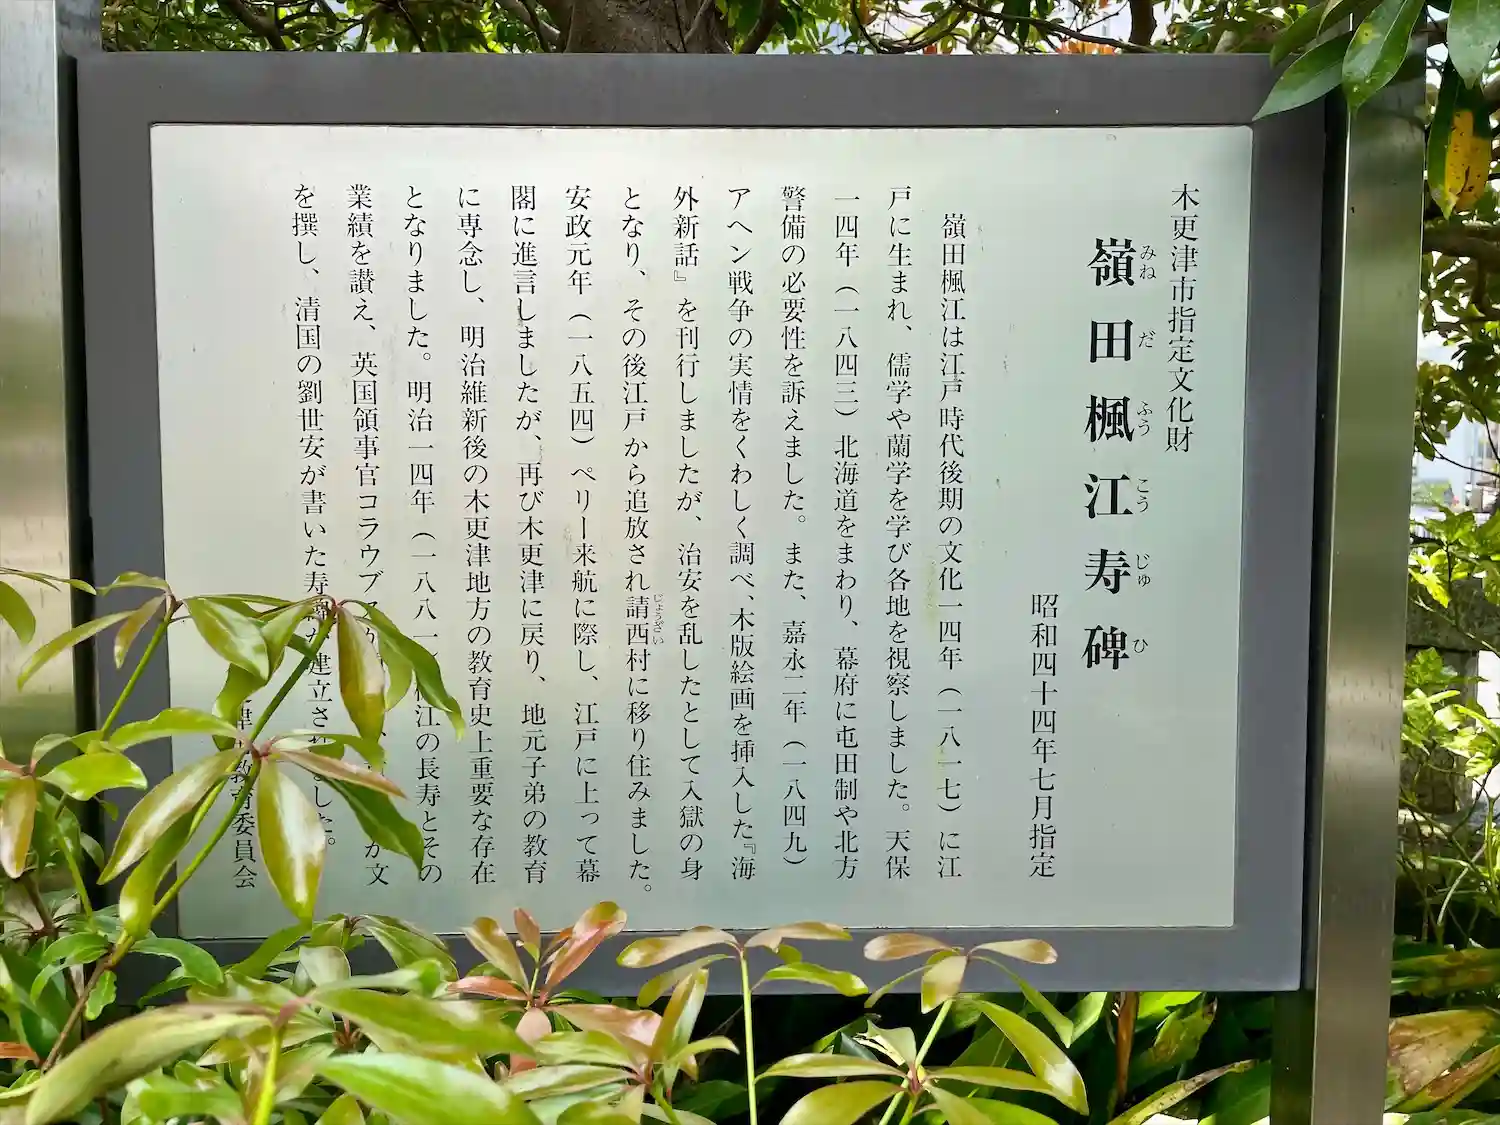 木更津市指定文化財
嶺田楓江寿碑
みねだふうこうじゅひ
昭和四十四年七月指定
嶺田楓江は江戸時代後期の文化一四年（一八一七）に江
戸に生まれ、儒学や蘭学を学び各地を視察しました。天保
一四年（一八四三）北海道をまわり、幕府に屯田制や北方
警備の必要性を訴えました。また、嘉永二年（一八四九）
アヘン戦争の実情をくわしく調べ、木版絵画を挿入した『海
外新話』を刊行しましたが、治安を乱したとして入獄の身
となり、その後江戸から追放され請西村に移り住みました。
じょうざい
安政元年（一八五四）ペリー来航に際し、江戸に上って幕
閣に進言しましたが、再び木更津に戻り、地元子弟の教育
に専念し、明治維新後の木更津地方の教育史上重要な存在
となりました。明治一四年（一八八一 江の長寿とその
業績を讃え、英国領事官コラウブ が文
を撰し、清国の劉世安が書いた寿 建立されました。
教育委員会